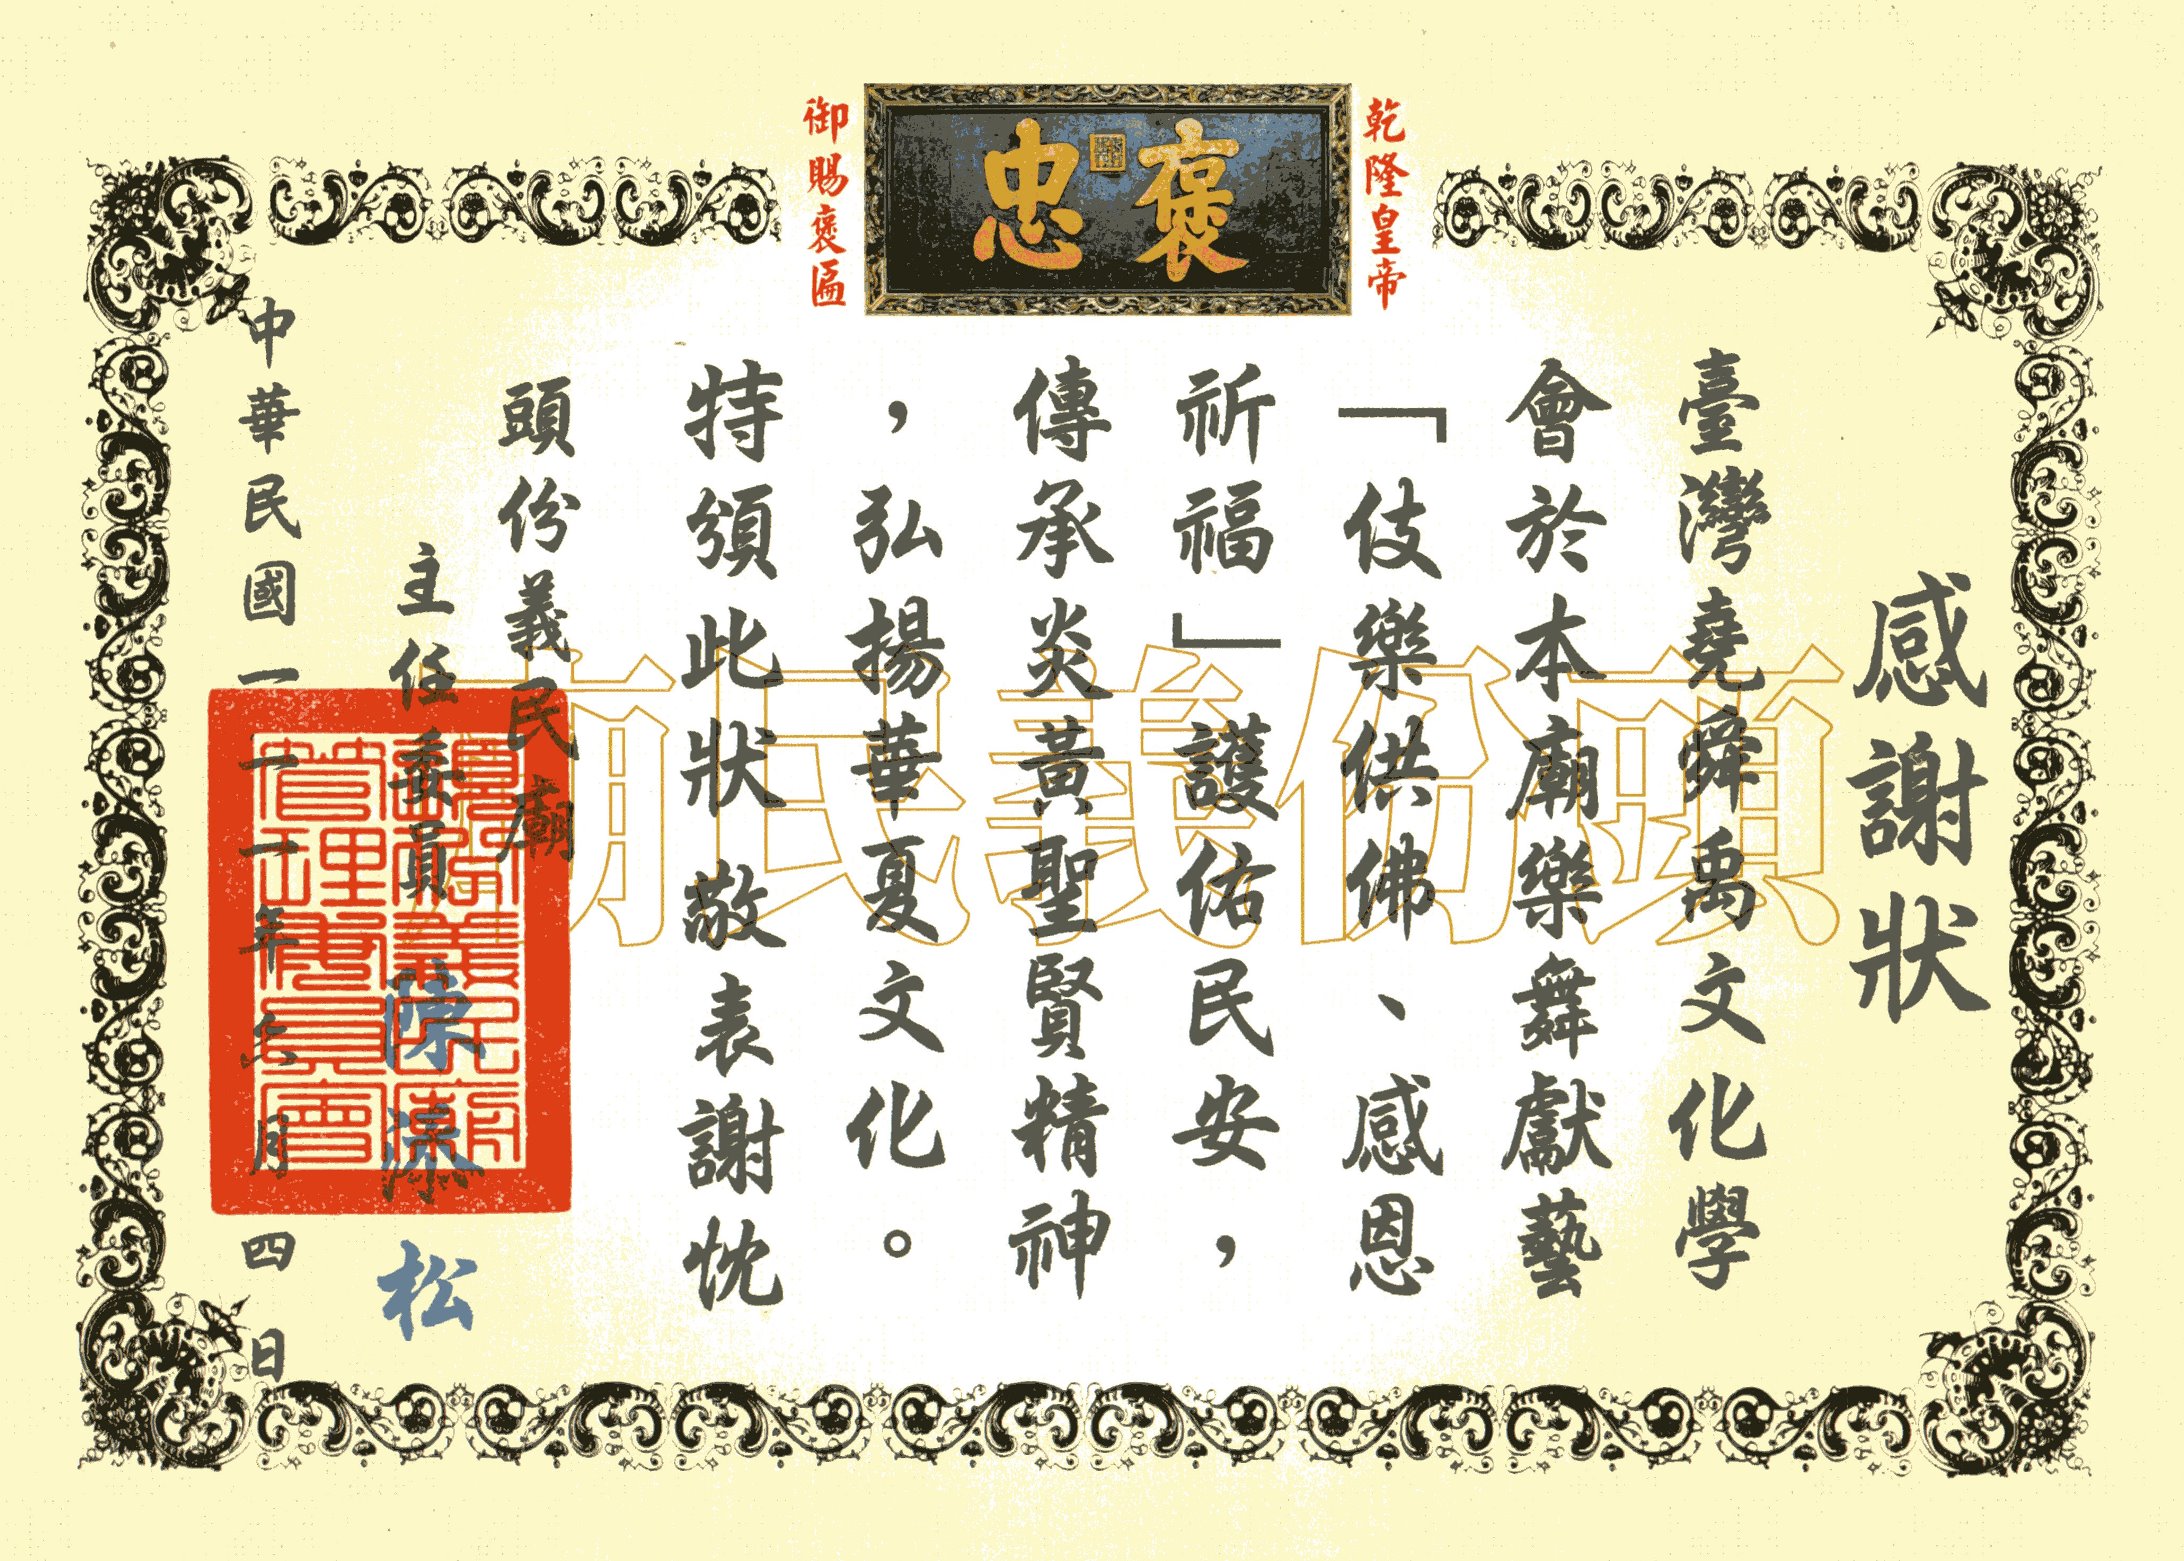 乾隆皇帝
褒忠
御賜褒匾
感謝狀
臺灣堯舜禹文化學
會於本廟樂舞獻藝
「伎樂供佛、感恩
祈福」護佑民安，
傳承炎黃聖賢精神
，弘揚華夏文化。
特頒此狀 敬表謝忱
頭份義民廟
主任委員 陳添松
中華民國一一一年六月四日
頭份義民廟
頭份義民廟
管理委員會